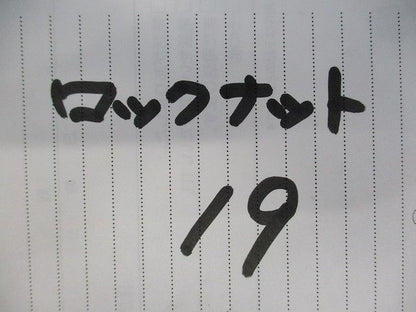 ロックナット
19